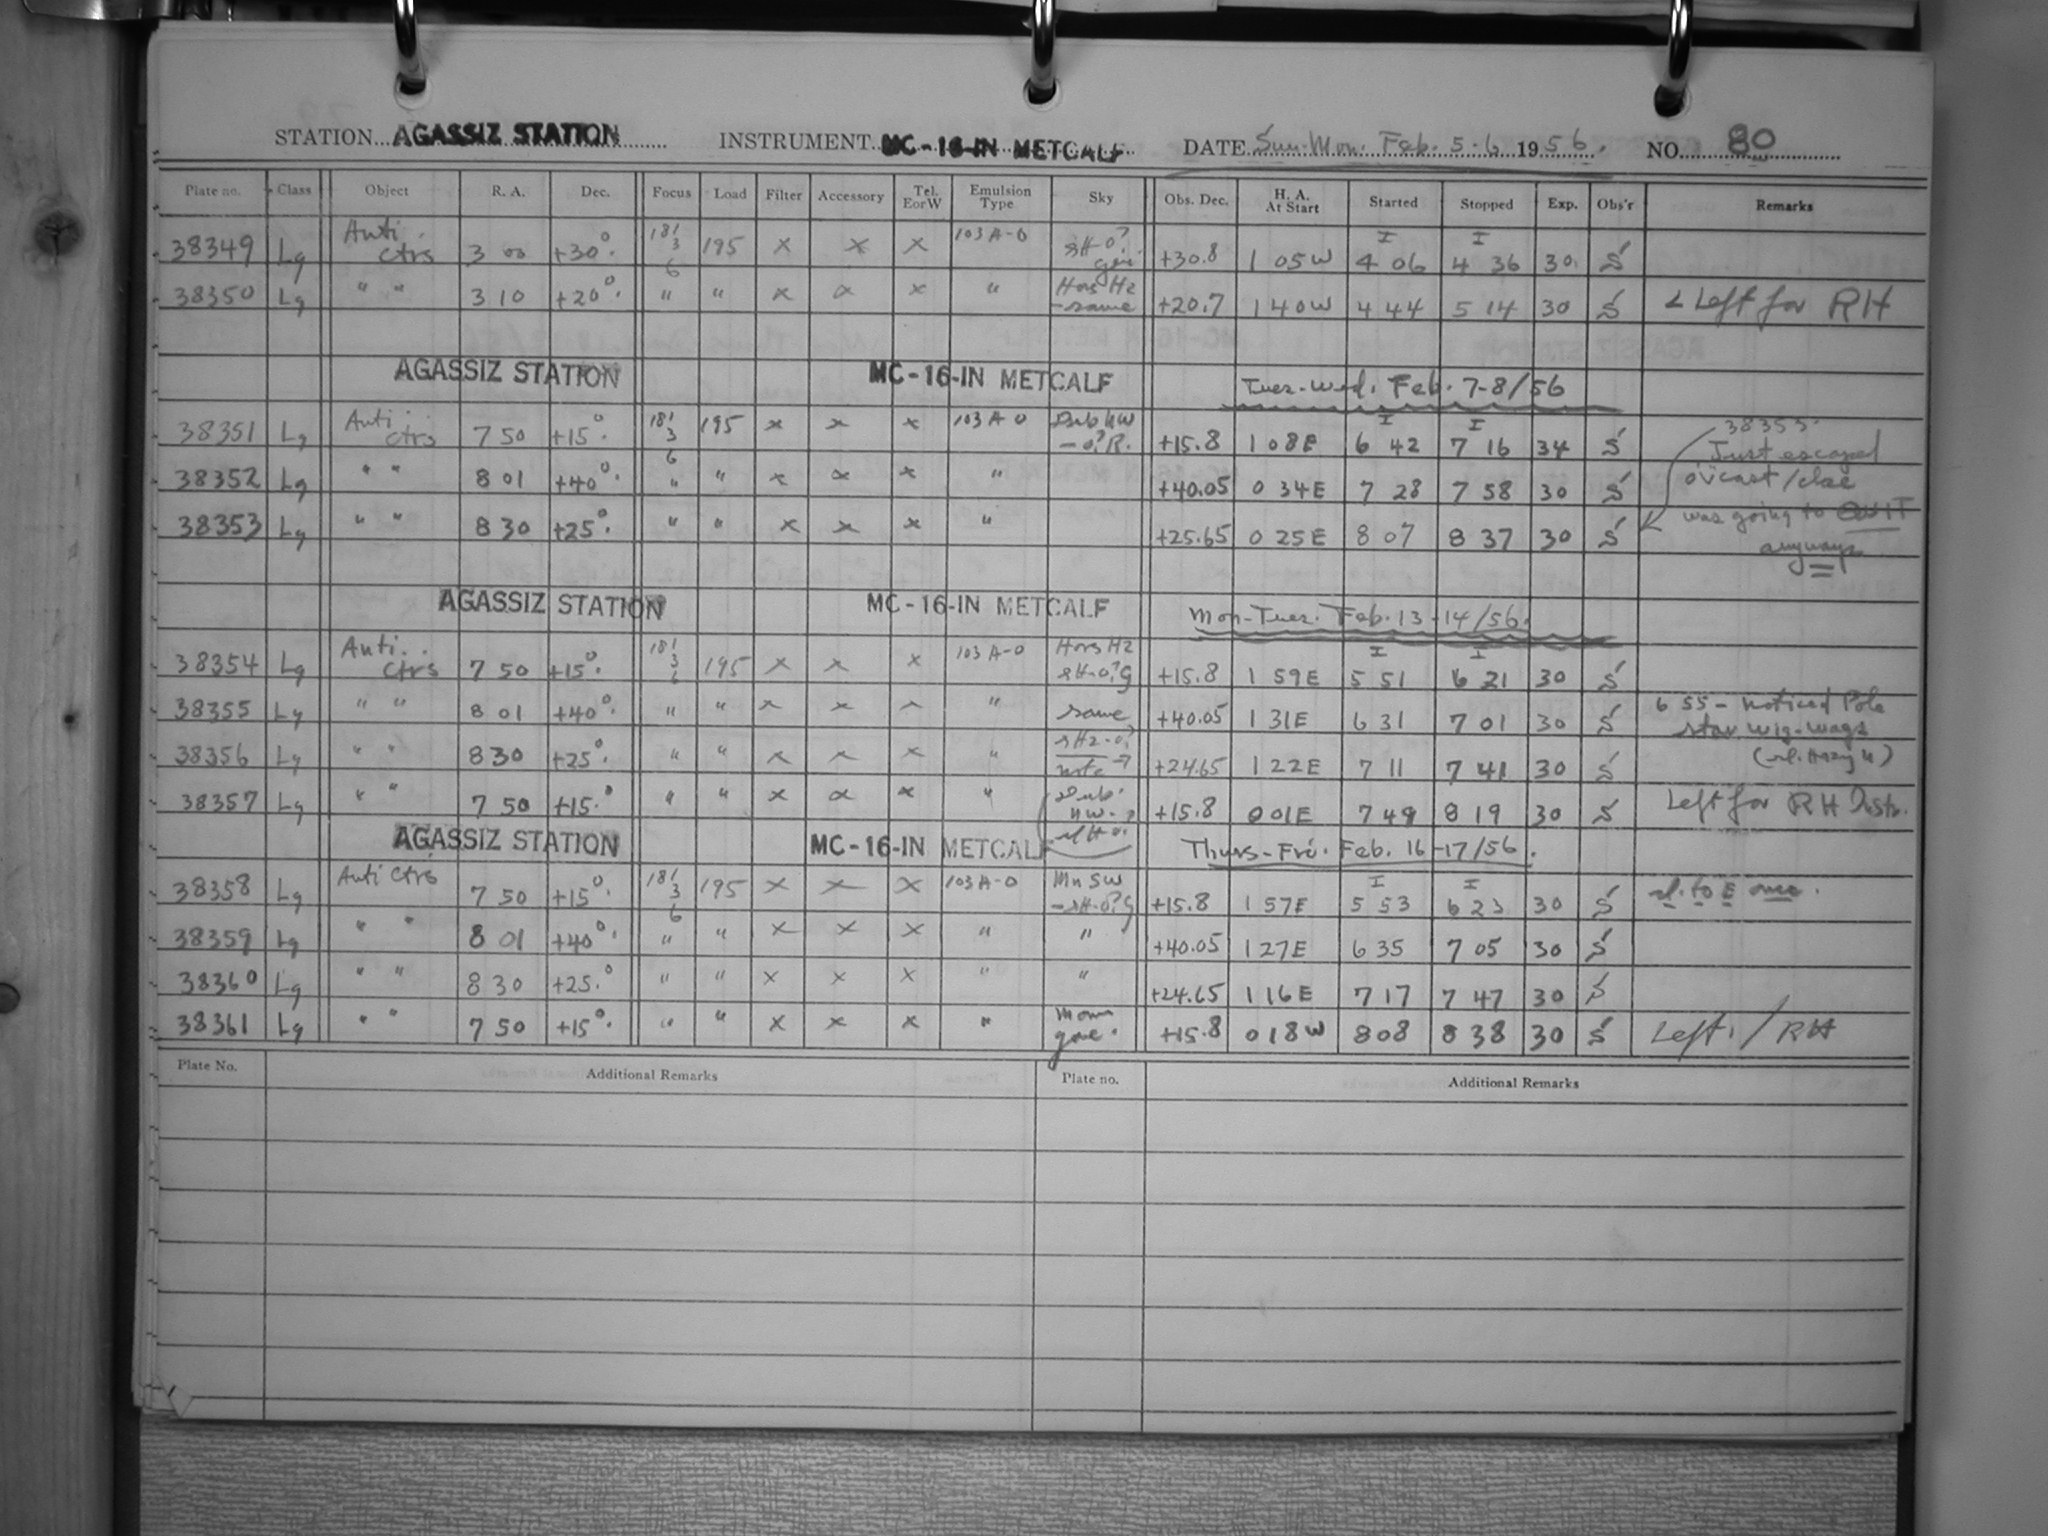 STATION AGASSIZ STATION INSTRUMENT MC-16-IN METCALF DATE Sun-Mon. Feb. 5-6 1956. NO. 80
Plate no. Class Object R. A. Dec. Focus Load Filter Accessory Tel. EorW Emulsion Type Sky Obs. Dec. H. A. At Start Started Stopped Exp. Obs'r Remarks
38349 Lg Anti. ctrs 3 00 +30°. 181 3 6 195 x x x 103A-O +30.8 1 05W I 4 06 I 4 36 30. S
38350 Lg " " 3 10 +20°. " " x x x " Hors Hz - same +20.7 1 40W 4 44 5 14 30 S Left for RH
AGASSIZ STATION MC-16-IN METCALF Tues-Wed. Feb. 7-8/56
38351 Lg Anti. ctrs 7 50 +15°. 181 3 6 195 x x x 103A-O +15.8 1 08E I 6 42 I 7 16 34 S 38353. Just escaped
38352 Lg " " 8 01 +40°. " " x x x " +40.05 0 34E 7 28 7 58 30 S o'vcast/else
38353 Lg " " 8 30 +25°. " " x x x " +25.65 0 25E 8 07 8 37 30 S was going to QUIT anyways
AGASSIZ STATION MC-16-IN METCALF Mon-Tues. Feb. 13-14/56.
38354 Lg Anti.. ctrs 7 50 +15°. 181 3 6 195 x x x 103A-O Hors Hz +15.8 1 59E I 5 51 I 6 21 30 S
38355 Lg " " 8 01 +40°. " " x x x " same +40.05 1 31E 6 31 7 01 30 S 6 55 - noticed Pole star wig-wags
38356 Lg " " 8 30 +25°. " " x x x " note → +24.65 1 22E 7 11 7 41 30 S (sl. Hazy N)
38357 Lg " " 7 50 +15.° " " x x x " +15.8 0 01E 7 49 8 19 30 S Left for RH Dists.
AGASSIZ STATION MC-16-IN METCALF Thurs-Fri. Feb. 16-17/56.
38358 Lg Anti Ctrs 7 50 +15°. 181 3 6 195 x x x 103A-O Mn SW +15.8 1 57E I 5 53 I 6 23 30 S sl. to E once.
38359 Lg " " 8 01 +40°. " " x x x " " +40.05 1 27E 6 35 7 05 30 S
38360 Lg " " 8 30 +25.° " " x x x " " +24.65 1 16E 7 17 7 47 30 S
38361 Lg " " 7 50 +15°. " " x x x " Moon gone. +15.8 0 18W 8 08 8 38 30 S Left. / RH
Plate No. Additional Remarks Plate no. Additional Remarks